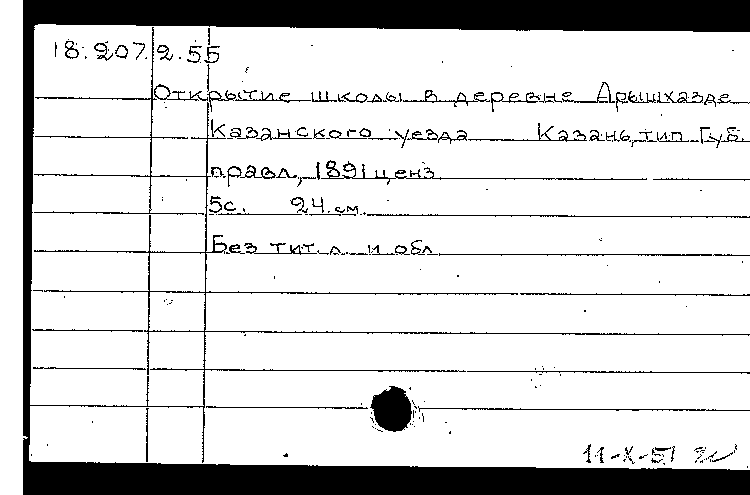 18.207.2.55
Открытие школы в деревне Арышхазде
Казанского уезда Казань, тип Губ.
правл., 1891 ценз.
5с. 24 см.
Без тит. л. и обл.
11-X-51